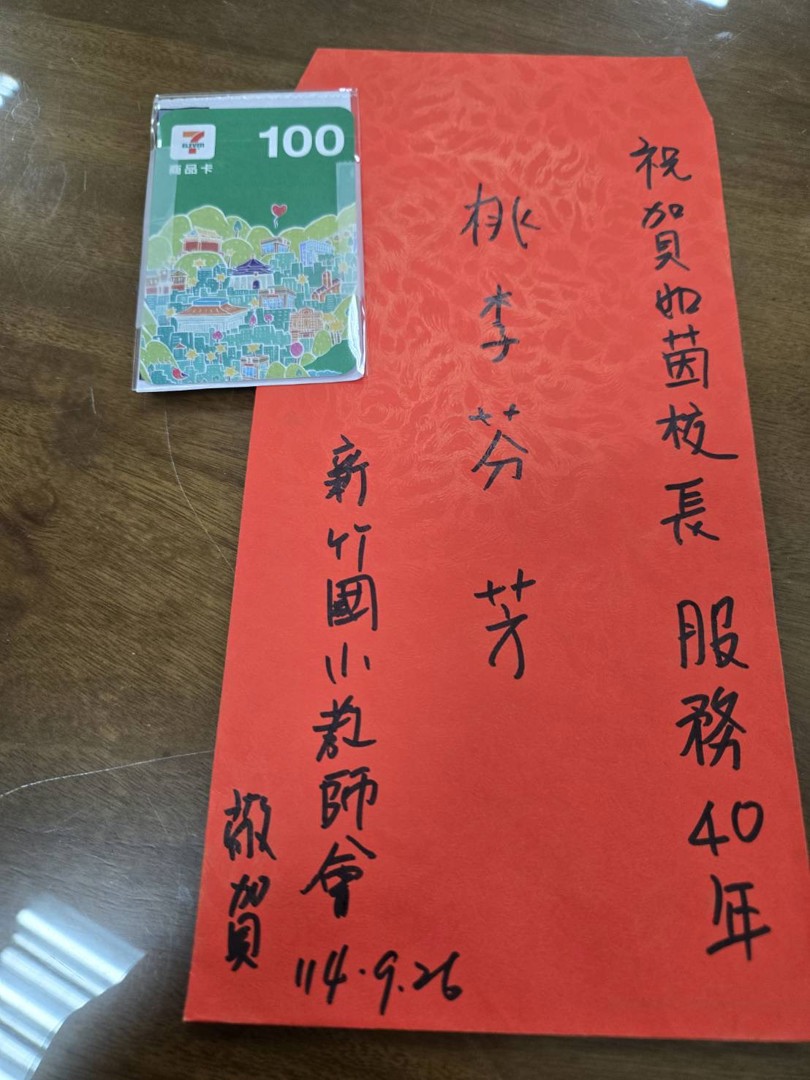 祝賀如茵校長 服務40年
桃李芬芳
新竹國小教師會
敬賀
114.9.26
7
ELEVEN
100
商品卡